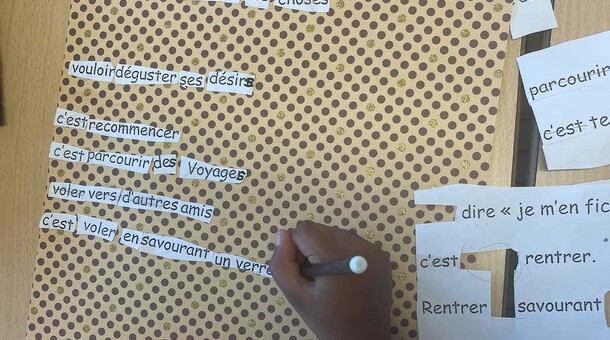 choses
vouloir déguster ses désirs
c'est recommencer
c'est parcourir des voyages
voler vers d'autres amis
c'est voler en savourant un verre
parcourir
c'est te
dire « je m'en fic
c'est rentrer.
Rentrer savourant